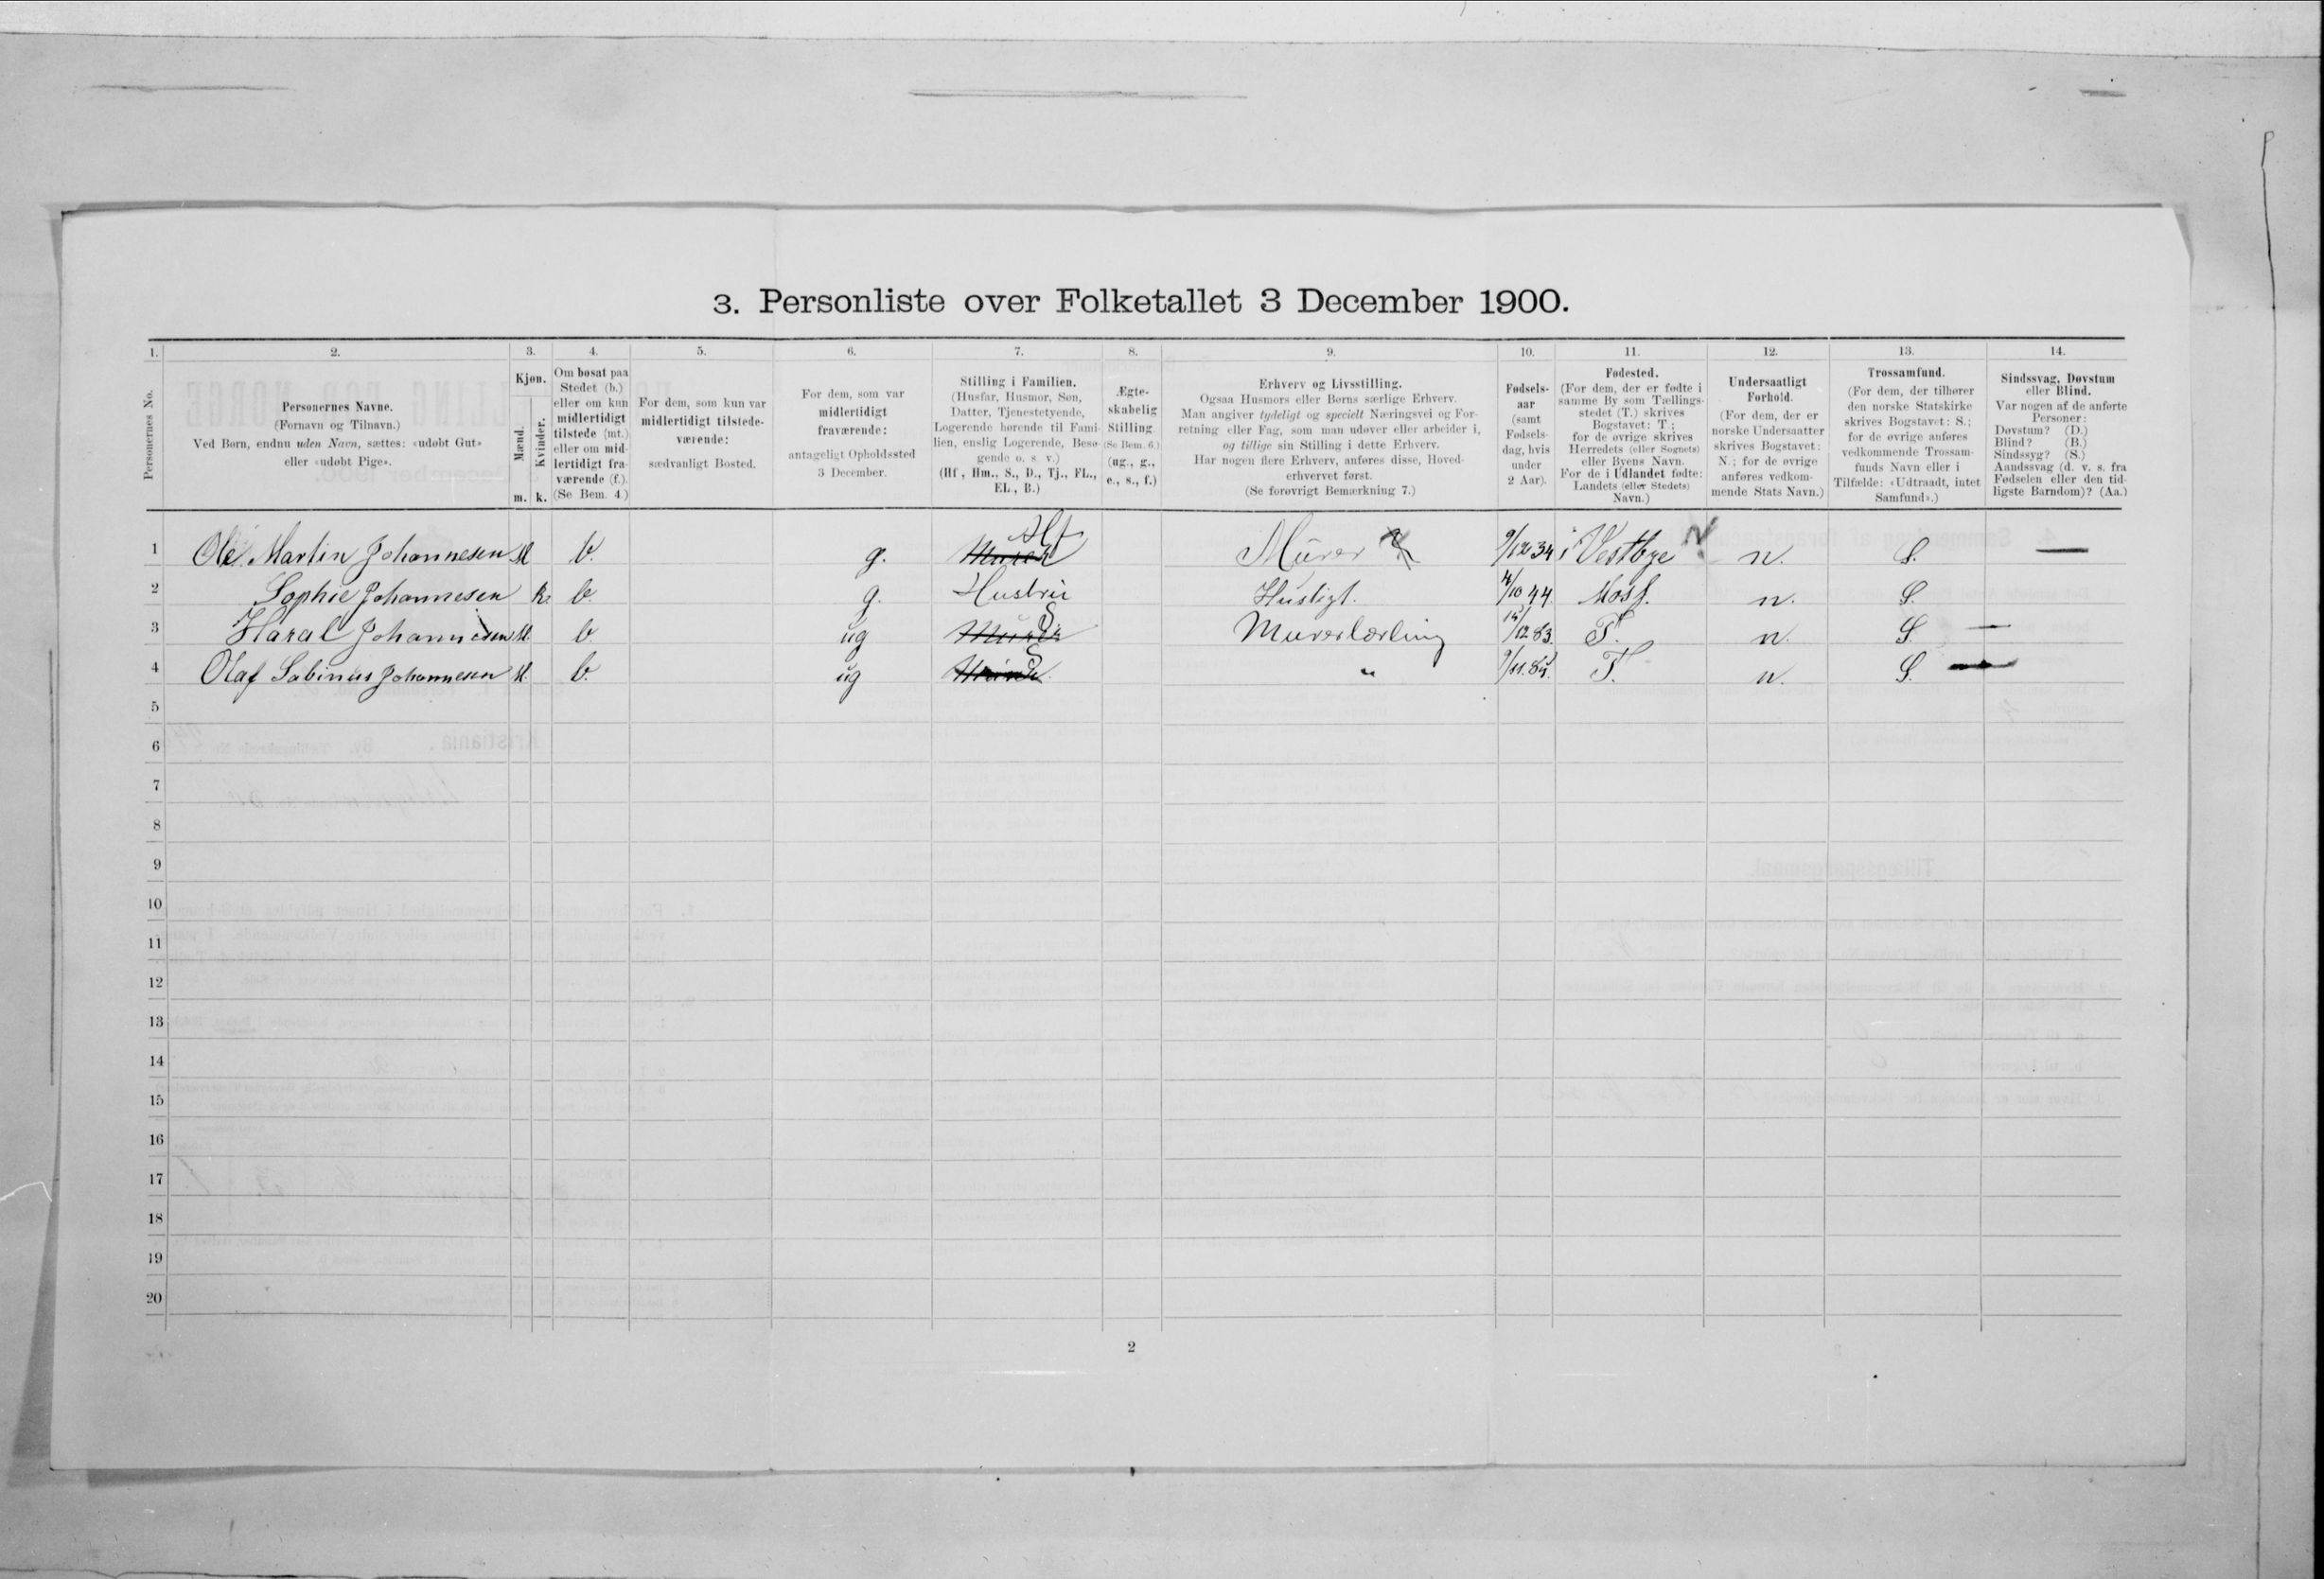 3. Personliste over Folketallet 3 December 1900.
1. 2. 3. 4. 5. 6. 7. 8. 9. 10. 11. 12. 13. 14.
Personernes No.
Personernes Navne.
(Fornavn og Tilnavn.)
Ved Børn, endnu uden Navn, sættes: «udøbt Gut»
eller «udøbt Pige».
Kjøn.
Mænd.
Kvinder.
m. k.
Om bosat paa
Stedet (b.)
eller om kun
midlertidigt
tilstede (mt.)
eller om mid-
lertidigt fra-
værende (f.).
(Se Bem. 4.)
For dem, som kun var
midlertidigt tilstede-
værende:
sædvanligt Bosted.
For dem, som var
midlertidigt
fraværende:
antageligt Opholdssted
3 December.
Stilling i Familien.
(Husfar, Husmor, Søn,
Datter, Tjenestetyende,
Logerende hørende til Fami-
lien, enslig Logerende, Besø-
gende o. s. v.)
(Hf., Hm., S., D., Tj., FL.,
EL., B.)
Ægte-
skabelig
Stilling.
(Se Bem. 6.)
(ug., g.,
e., s., f.)
Erhverv og Livsstilling.
Ogsaa Husmors eller Børns særlige Erhverv.
Man angiver tydeligt og specielt Næringsvei og For-
retning eller Fag, som man udøver eller arbeider i,
og tillige sin Stilling i dette Erhverv.
Har nogen flere Erhverv, anføres disse, Hoved-
erhvervet først.
(Se forøvrigt Bemærkning 7.)
Fødsels-
aar
(samt
Fødsels-
dag, hvis
under
2 Aar).
Fødested.
(For dem, der er fødte i
samme By som Tællings-
stedet (T.) skrives
Bogstavet: T.;
for de øvrige skrives
Herredets (eller Sognets)
eller Byens Navn.
For de i Udlandet fødte:
Landets (eller Stedets)
Navn.)
Undersaatligt
Forhold.
(For dem, der er
norske Undersaatter
skrives Bogstavet:
N.; for de øvrige
anføres vedkom-
mende Stats Navn.)
Trossamfund.
(For dem, der tilhører
den norske Statskirke
skrives Bogstavet: S.;
for de øvrige anføres
vedkommende Trossam-
funds Navn eller i
Tilfælde: «Udtraadt, intet
Samfund».)
Sindssvag, Døvstum
eller Blind.
Var nogen af de anførte
Personer:
Døvstum? (D.)
Blind? (B.)
Sindssyg? (S.)
Aandssvag (d. v. s. fra
Fødselen eller den tid-
ligste Barndom)? (Aa.)
1 Ole Martin Johannesen M b. g. Murer Hf Mürer 9/12 34 i Vestbye N n. S. —
2 Sophie Johannesen k. b. g. Hustrü Hüsligt. 4/10 44 Moss. n. S.
3 Haral Johannesen M. b ug Murer S Murerlærling 15/12 83. T. n. S. —
4 Olaf Sabinus Johannesen M. b. ug S " T. n. S. —
5
6
7
8
9
10
11
12
13
14
15
16
17
18
19
20
2